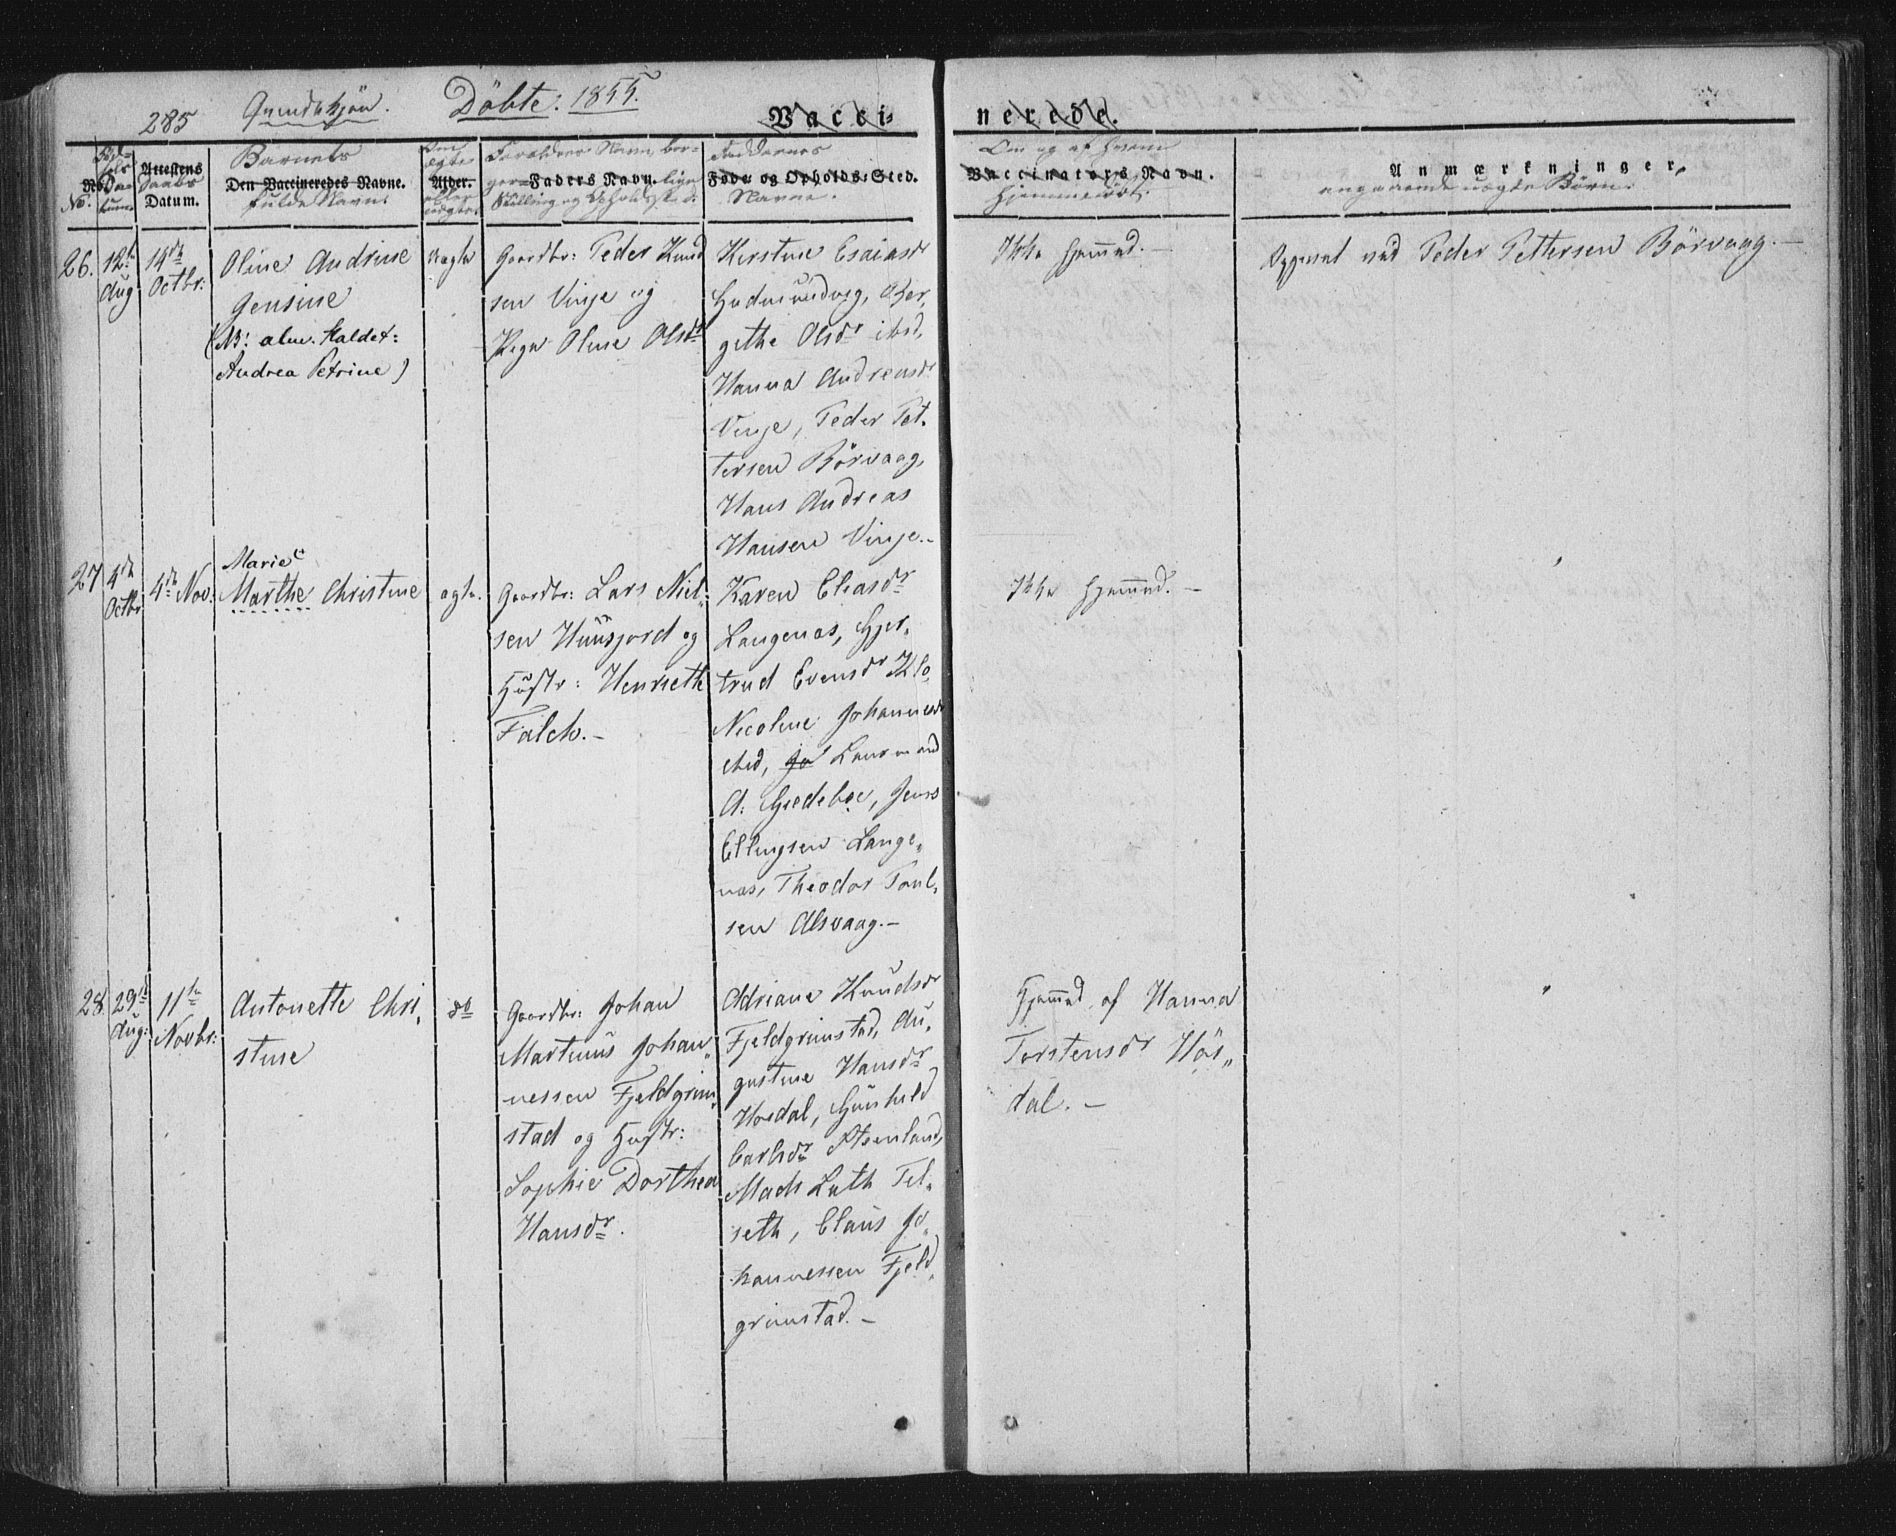 285 Qvindekjön. Döbte. 1855.
Vacci- nerede.
Födsels Datum
No.
No.
Daabs
Attestens
Datum.
Barnets
Den Vaccineredes Navne.
fulde Navn.
Om
ægte
Alder.
eller
uægte.
Forældres Navn, bor-
ger- Faders Navn. lige
Stilling og Opholdssted.
Faddernes
Føde- og Opholds-Sted.
Navne.
Om og af hvem
Vaccinators Navn.
hjemmedöbt.
Anmærkninger,
angaaende uægte Börn.
26. 12te Aug 14de Octbr:
Oline Andrine
Gensine
(NB: alm. kaldet:
Andrea Petrine)
uægte
Gaardbr: Peder Knud
sen Vinje og
Pige Oline Olsdr
Kirstine Esaiasdr
Gudmundvig, Ber,
gethe Olsdr ibid,
Hanna Andreasdr
Vinje, Peder Pet,
tersen Börvaag,
Hans Andreas
Hansen Vinje.-
Ikke hjemmed. -
Opgivet ved Peder Pettersen Börvaag. -
27 4de Octbr 4de Nov:
Marie
Marthe Christine
ægte.
Gaardbr: Lars Niel,
sen Huusjord og
Hustr: Henriethe
Falch. -
Karen Eliasdr
Langenæs, Gjer,
trud Evensdr Klo
Nicoline Johannesdr
ibid, Jo Lensmand
A. Giedeboe, Jens
Ellingsen Lange,
næs, Theodor Poul,
sen Alsvaag. -
Ikke hjemmed. -
28. 29de Aug: 11te Novbr:
Antonette Chri,
stine
do
Gaardbr: Johan
Martinus Johan,
nessen Fjeldgrim,
stad og Hustr:
Sophie Dorthea
Hansdr.
Adriane Knudsdr
Fjeldgrimstad, Au,
gustine Hansdr
Höedal, Gunhild
Carlsdr Steenland,
Mads Luth Til,
seth, Claus Jo,
hannessen Fjeld,
grimstad. -
Hjemmed. af Hanna
Torstensdr Höi,
dal. -